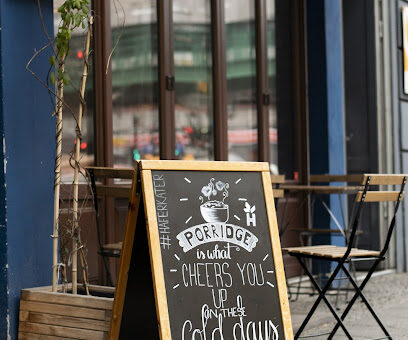 #HAFERKATER
H
PORRIDGE
is what
CHEERS YOU
UP
ON THESE
cold days